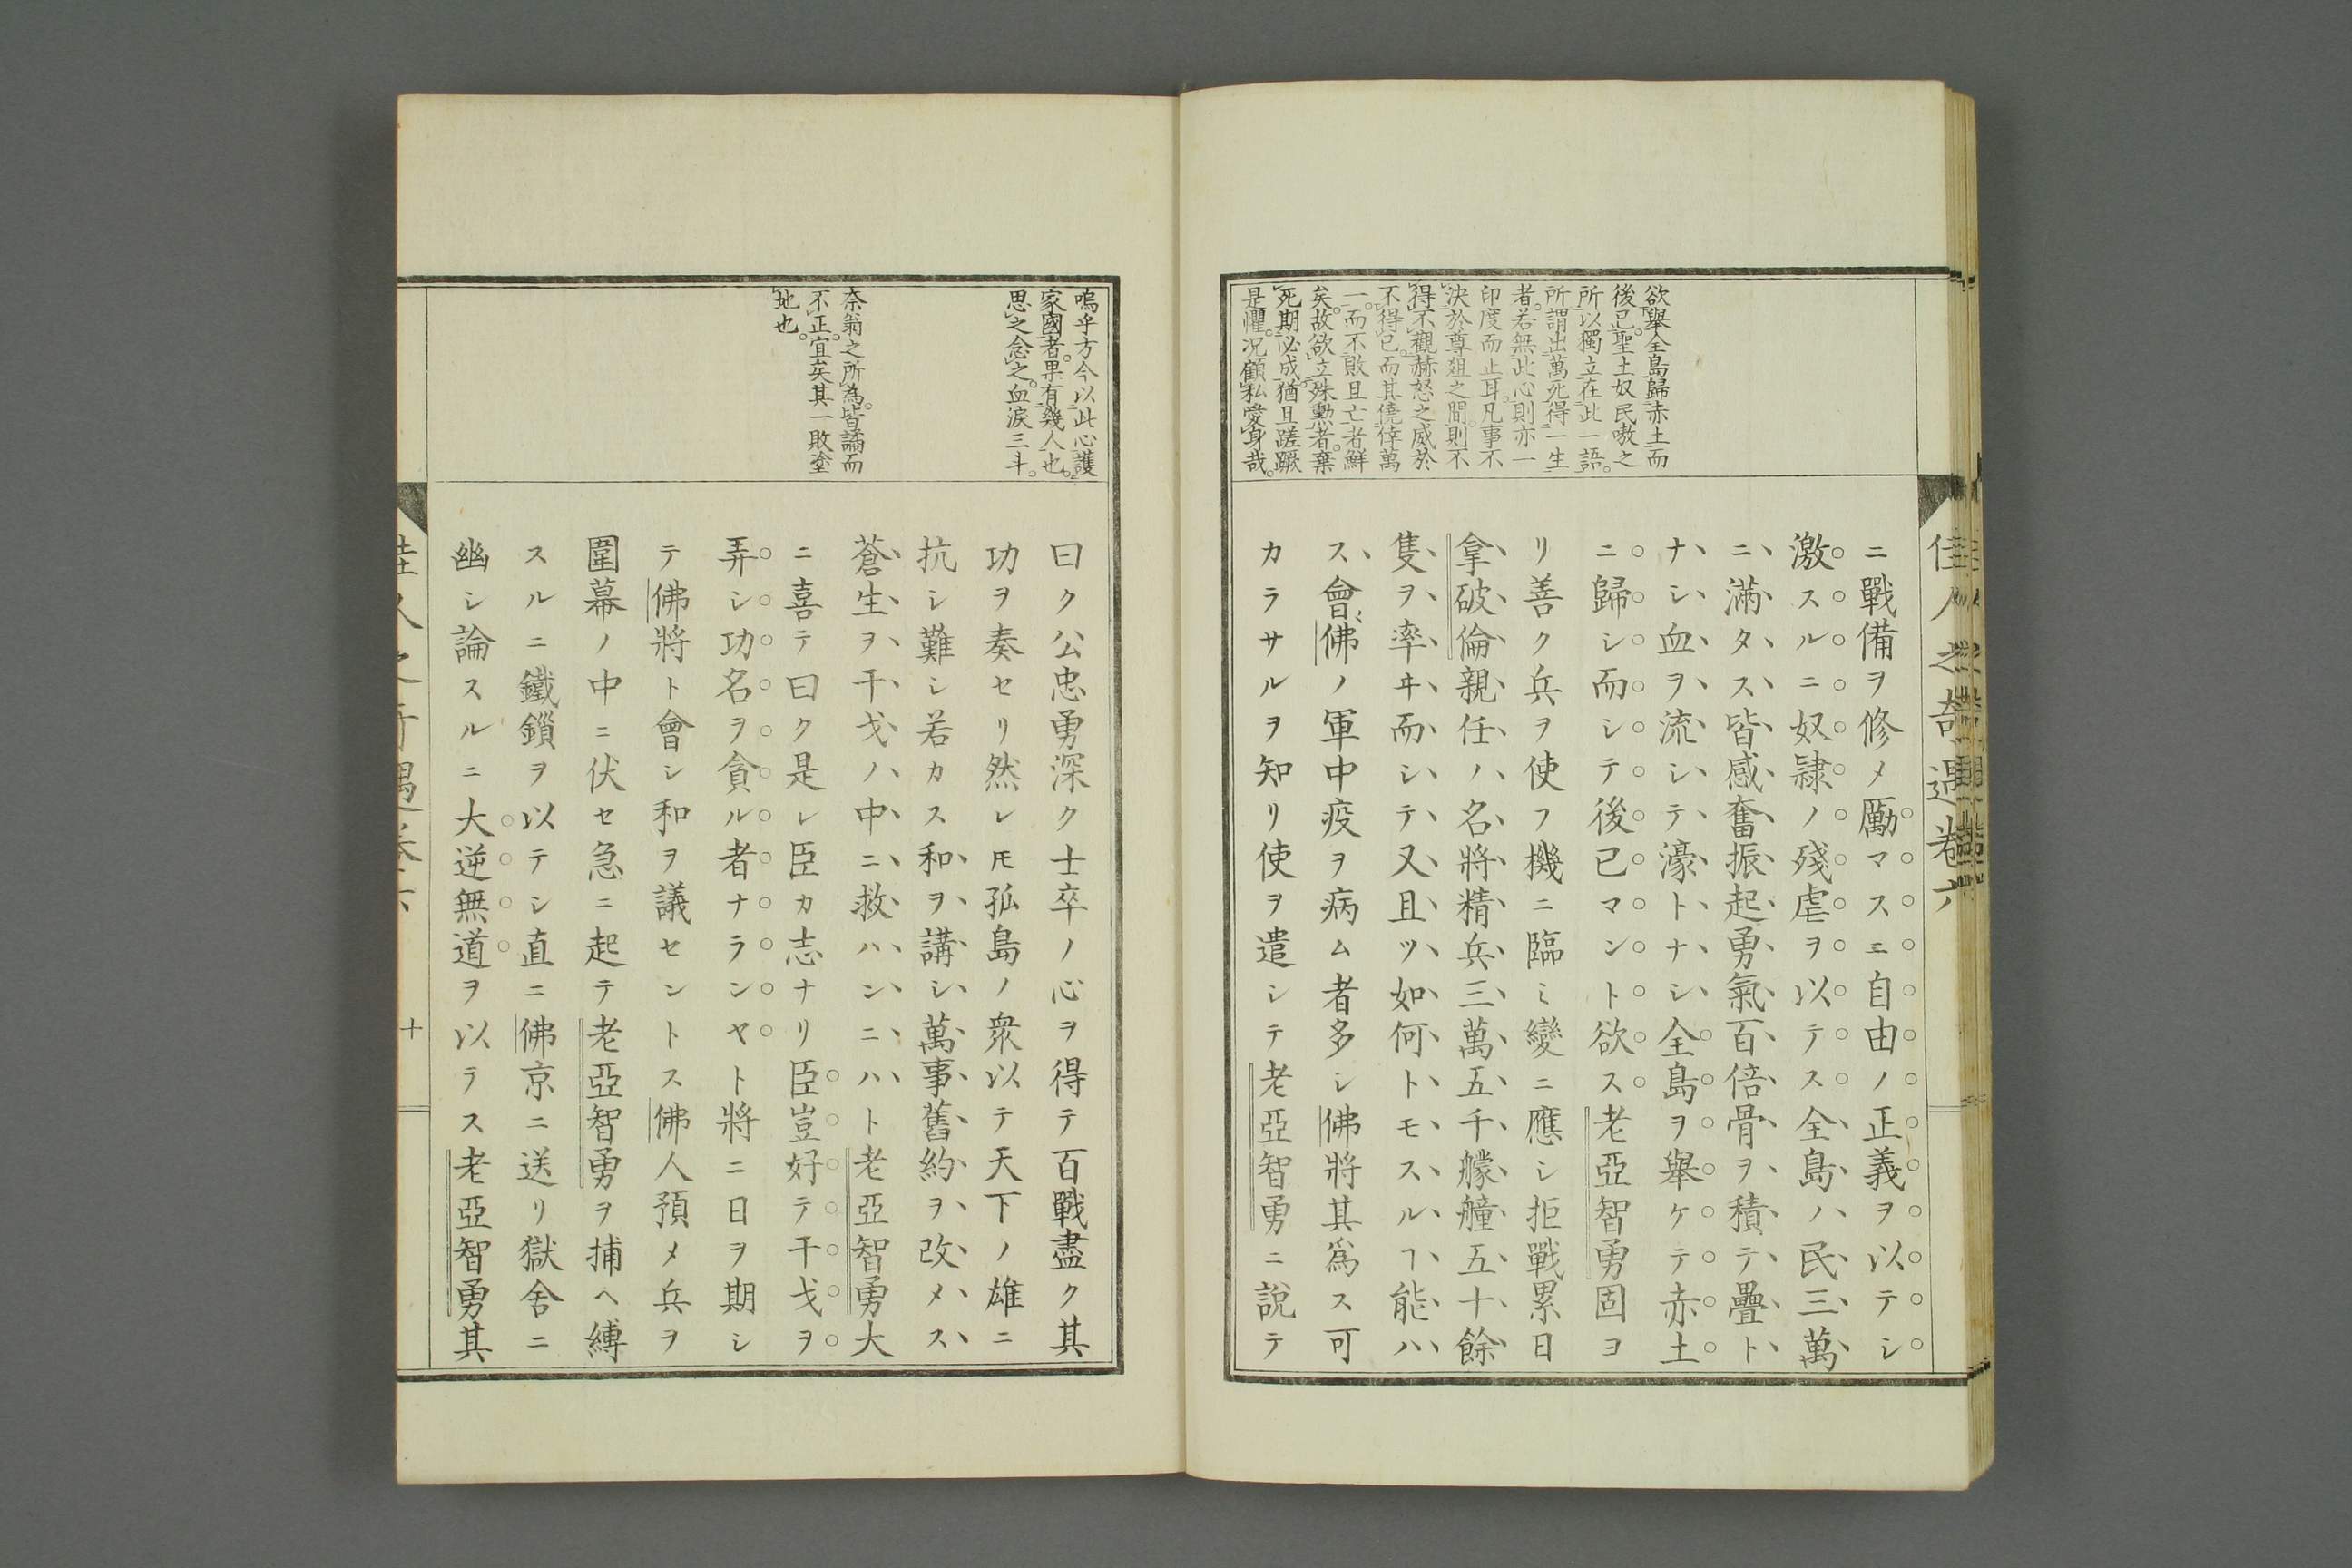 佳人之奇遇卷六
欲舉全島歸赤土而
後已聖土奴民嗷之
所以獨立在此一語
所謂出萬死得一生
者若無此心則亦一
印度而止耳凡事不
決於尊俎之間則不
得不觀赫怒之威於
不得已而其僥倖萬
一而不敗且亡者鮮
矣故欲立殊勲者棄
死期必成猶且蹉蹶
是懼況顧私愛身哉
ニ戰備ヲ修メ勵マスニ自由ノ正義ヲ以テシ
激スルニ奴隷ノ殘虐ヲ以テス全島ノ民三萬
ニ滿タス皆感奮振起勇氣百倍骨ヲ積テ疊ト
ナシ血ヲ流シテ濠トナシ全島ヲ舉ケテ赤土
ニ歸シ而シテ後已マント欲ス老亞智勇固ヨ
リ善ク兵ヲ使フ機ニ臨ミ變ニ應シ拒戰累日
拿破倫親任ノ名將精兵三萬五千艨艟五十餘
隻ヲ率ヰ而シテ又且ツ如何トモスルヿ能ハ
ス會佛ノ軍中疫ヲ病ム者多シ佛將其爲ス可
カラサルヲ知リ使ヲ遣シテ老亞智勇ニ説テ
嗚乎方今以此心護
家國者果有幾人也
思之念之血淚三斗
奈翁之所為皆譎而
不正宜矣其一敗塗
地也
曰ク公忠勇深ク士卒ノ心ヲ得テ百戰盡ク其
功ヲ奏セリ然レ𪜈孤島ノ衆以テ天下ノ雄ニ
抗シ難シ若カス和ヲ講シ萬事舊約ヲ改メス
蒼生ヲ干戈ノ中ニ救ハンニハト老亞智勇大
ニ喜テ曰ク是レ臣カ志ナリ臣豈好テ干戈ヲ
弄シ功名ヲ貪ル者ナランヤト將ニ日ヲ期シ
テ佛將ト會シ和ヲ議セントス佛人預メ兵ヲ
圍幕ノ中ニ伏セ急ニ起テ老亞智勇ヲ捕ヘ縛
スルニ鐵鎖ヲ以テシ直ニ佛京ニ送リ獄舍ニ
幽シ論スルニ大逆無道ヲ以ラス老亞智勇其
十